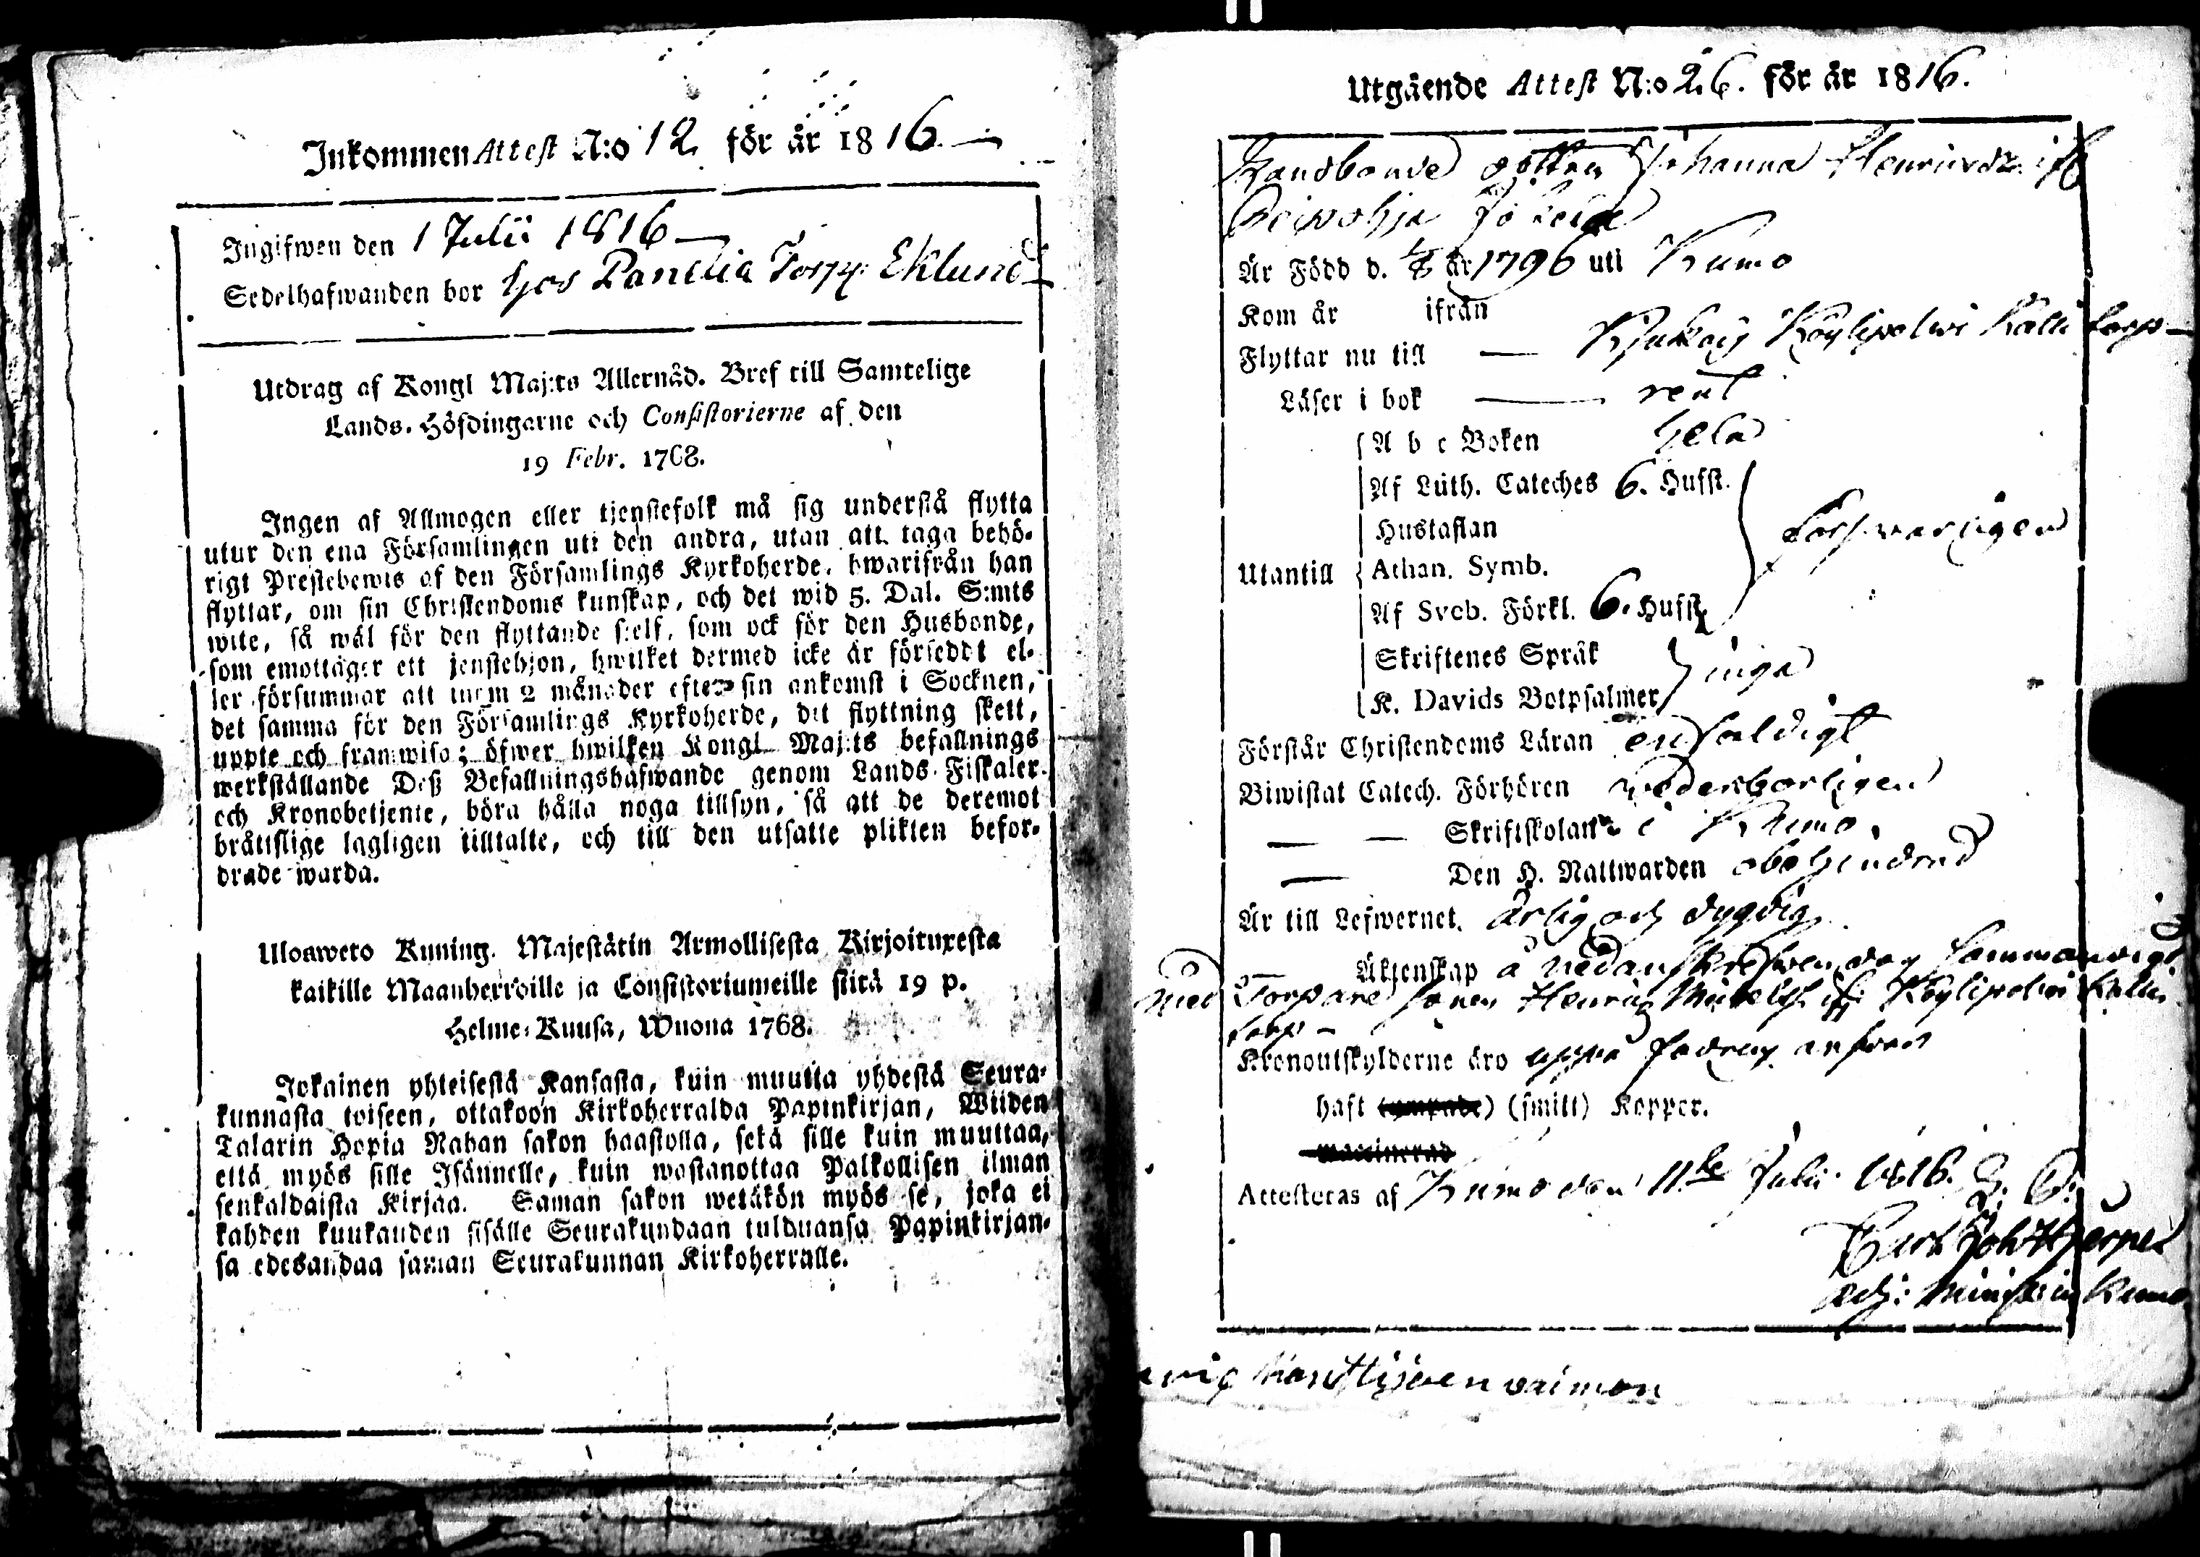 Inkommen Attest N:o 12 för år 1816.
Ingifwen den 1 Julii 1816
Sedelhafwanden bor hos Panelia Torp: Eklund
Utdrag af Kongl Maj:ts Allernåd. Bref till Samtelige
Lands-Höfdingarne och Consistorierne af den
19 Febr. 1768.
Ingen af Allmogen eller tjenstefolk må sig understå flytta
utur den ena Församlingen uti den andra, utan att taga behö-
rigt Prestebewis af den Församlings Kyrkoherde, hwarifrån han
flyttar, om sin Christendoms kunskap, och det wid 5. Dal. S:mts
wite, så wäl för den flyttande sielf, som ock för den Husbonde,
som emottager ett jenstehjon, hwilket dermed icke är försedt el-
ler försummar att inom 2 månader efter sin ankomst i Socknen,
det samma för den Församlings Kyrkoherde, dit flyttning skett,
uppte och framwisa; öfwer hwilken Kongl Maj:ts befallnings
werkställande Deß Befallningshafwande genom Lands-Fiskaler
och Kronobetjente, böra hålla noga tillsyn, så att de deremot
bråttslige lagligen tilltalte, och till den utsatte plikten befor-
drade warda.
Ulosweto Kuning. Majestätin Armollisesta Kirjoituxesta
kaikille Maanherroille ja Consistoriumeille siitä 19 p.
Helme-Kuusa, Wuona 1768.
Jokainen yhteisestä Kansasta, kuin muutta yhdestä Seura-
kunnasta toiseen, ottakoon Kirkoherralda Papinkirjan, Wiiden
Talarin Hopia Rahan sakon haastolla, sekä sille kuin muuttaa,
että myös sille Isännelle, kuin wastanottaa Palkollisen ilman
senkaldaista Kirjaa. Saman sakon wetäkön myös se, joka ei
kahden kuukauden sisälle Seurakundaan tulduansa Papinkirjan-
sa edesandaa saman Seurakunnan Kirkoherralle.
Utgående Attest N:o 26. för år 1816.
Landbonde dottren Johanna Henricsdr. ifr
Är Född d. 1/8 år 1796 uti Kumo
Kom år ifrån
Flyttar nu till — Kjukais Köylipolwi Kalli torp
Läser i bok — rent
A b c Boken hela
Af Luth. Cateches 6. Hufst.
Hustaflan
försvarligen
Utantill Athan. Symb.
Af Sveb. Förkl. 6. Hufst
Skriftenes Språk
inga
K. Davids Botpsalmer
Förstår Christendoms Läran enfaldigt
Biwistat Catech. Förhören wederbörligen
— — Skriftskolan i Kumo.
— Den H. Nattwarden obehindrad
Är till Lefwernet. ärlig och dygdig
Äktenskap å nedanskrefwen dag sammanvigd
med Torpare sonen Henric Michelss. ifr Köylipolwi Kalli
torp
Kronoutskylderne äro
haft (ympade) (smitt) Kopper.
waccinerad
Attesteras af Kumo den 11te Julii 1816.